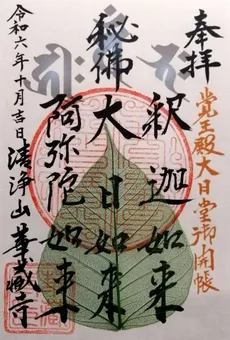 奉拝
覚王殿大日堂御開帳
釈迦如来
秘佛大日如来
阿弥陀如来
令和六年十月吉日
清浄山華蔵寺